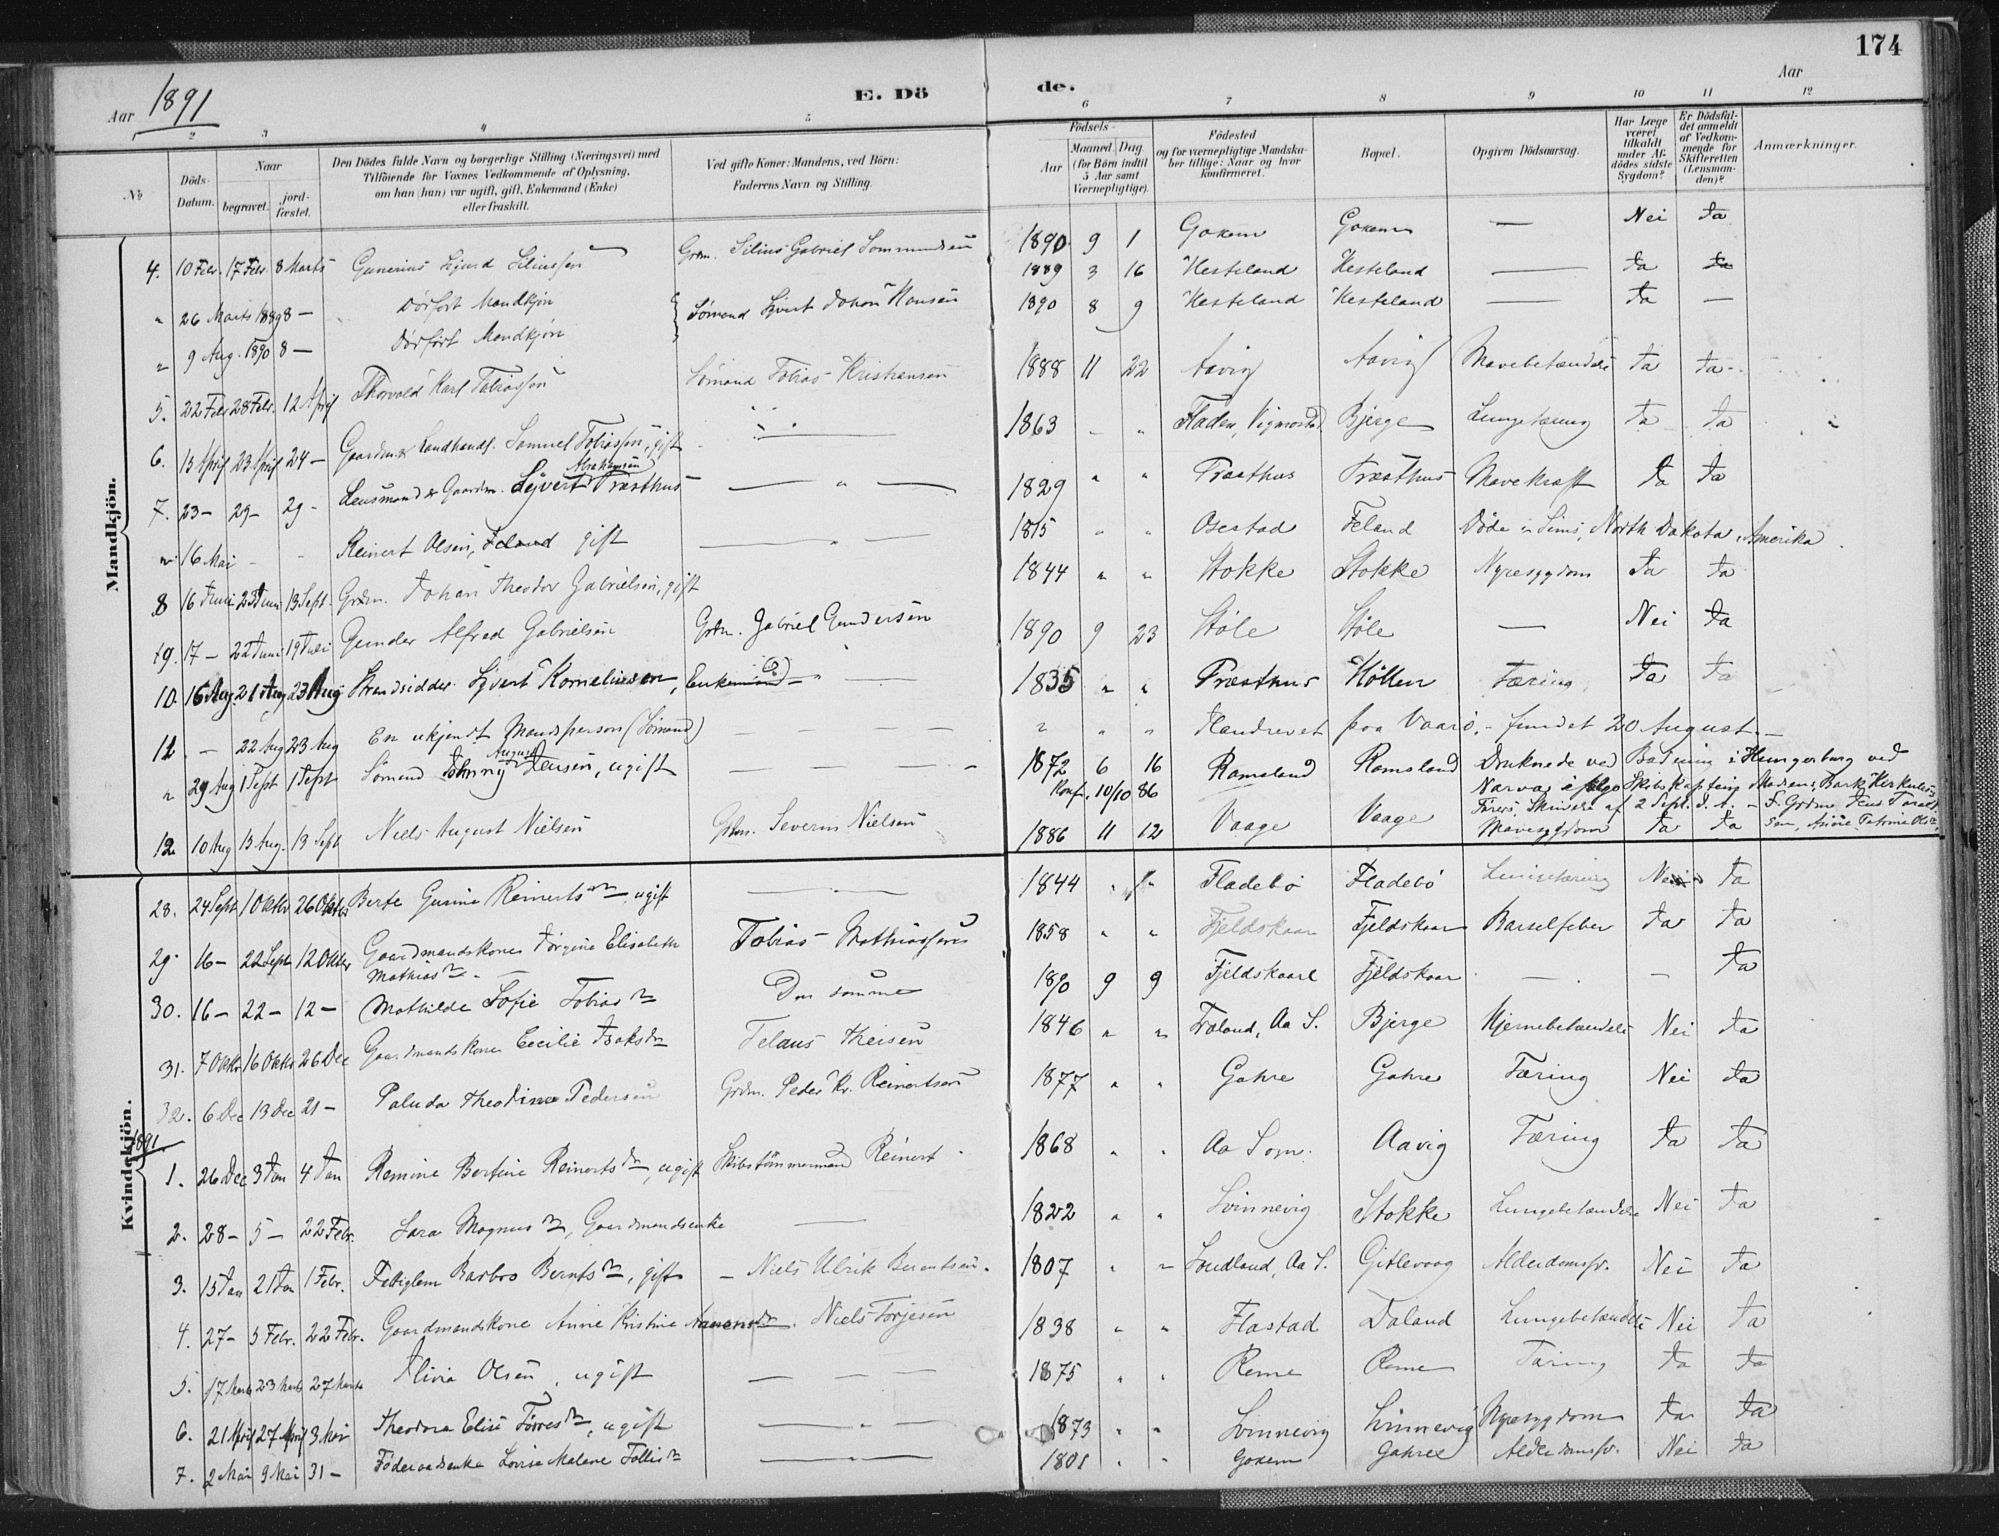 174
Aar 1891
E. Dö de.
Aar
2 3 4 5 6 7 8 9 10 11 12
№
Döds-Datum.
Naar begravet. jord-fæstet.
Den Dödes fulde Navn og borgerlige Stilling (Næringsvei) med Tilföiende for Voxnes Vedkommende af Oplysning, om han (hun) var ugift, gift, Enkemand (Enke) eller fraskilt.
Ved gifte Koner: Mandens, ved Börn: Faderens Navn og Stilling.
Födsels- Aar Maaned. Dag. (for Börn indtil 5 Aar samt Værnepligtige).
Födested og for værnepligtige Mandskaber tillige: Naar og hvor konfirmeret.
Bopæl.
Opgiven Dödsaarsag.
Har Læge været tilkaldt under Afdödes sidste Sygdom?
Er Dödsfaldet anmeldt af Vedkommende for Skifteretten (Lensmanden)?
Anmærkninger.
Mandkjön.
4. 10 Febr. 17 Febr. 8 Marts Gunerius Sigurd Siliussen Grdm. Silius Gabriel Sommundsen 1890 9 1 Goksem Goksem — Nei Ja
" 26 Marts 1889 8 — Dødfødt Mandkjön Sømand Sivert Johan Hansen 1889 3 16 Hesteland Hesteland — Ja Ja
" 9 Aug. 1890 8 — Dødfødt Mandkjön 1890 8 9 Hesteland Hesteland — Ja —
5. 22 Febr 28 Febr. 12 April Thorvald Karl Tobiassen Sømand Tobias Kristiansen 1888 11 22 Aavig Aavig Mavebetændelse Ja Ja
6. 15 April 23 April 24 — Gaardm. & Landhandl. Samuel Tobiassen, gift 1863 " " Fladen, Vigmostad Bjerge Lungetæring Ja Ja
7. 23 — 29 — 29 — Lensmand & Gaardm. Sivert Abrahamsen Træsthus 1829 " " Præsthus Præsthus Mavekræft Ja Ja
" 16 Mai — Reinert Olsen, Feland gift 1815 " " Osestad Feland Døde i Sims, North Dakota, Amerika
8 16 Juni 23 Juni 13 Sept. Grdm. Johan Theodor Gabrielsen, gift 1844 " " Stokke Stokke Nyresygdom Ja Ja
9. 17 — 22 Juni 19 Juli Gunder Alfred Gabrielsen Grdm. Gabriel Gundersen 1890 9 23 Støle Støle — Nei Ja
10. 16 Aug. 21 Aug 23 Aug Strandsidder Sivert Korneliussen, Enkemand 1835 " " Præsthus Høllen Tæring Ja Ja
11. — 22 Aug 23 Aug En ukjendt Mandsperson (Sømand) " " " Ilanddrevet paa Vaarø. — fundet 20 August. —
" 29 Aug 1 Sept 1 Sept Sømand Johnny August Jensen, ugift 1872 6 16 Ramsland Ramsland Druknede ved Badning i Hungerburg ved
Konf. 10/10 86 Narva ifølge Skibskaptein Madsens, Bark Herkules
Skrivelse af 2 Sept. d. A. — F. Grdm Jens
12 10 Aug 15 Aug. 13 Sept Niels August Nielsen Grdm. Severin Nielsen 1886 11 12 Vaage Vaage Mavesygdom Ja Ja
Kvindekjön.
28. 24 Sept 1 Oktbr 26 Oktbr Berte Gurine Reinertsdtr, ugift 1844 " " Fladebö Fladebö Lungetæring Nei Ja
29. 16 — 22 Sept 12 Oktbr Gaardmandskone Jørgine Elisabeth Mathiasdtr. Tobias Mathiassen 1858 " " Fjeldskaar Fjeldskaar Barselfeber Ja Ja
30. 16 — 22 — 12 — Mathilde Sofie Tobiasdtr Den samme 1890 9 9 Fjeldskaar Fjeldskaar — — Ja
31. 7 Oktbr 16 Oktbr 26 Dec Gaardmandskone Cecilie Isaksdtr Telaus Theisen 1846 " " Foland, Aa S. Bjerge Hjernebetændelse Nei Ja
32. 6 Dec 13 Dec 21 — Paluda Theodine Pedersen Grdm. Peder Kr. Reinertsen 1877 " " Gahre Gahre Tæring Nei Ja
1891
1. 26 Dec 3 Jan 4 Jan Ramine Bertine Reinertsdtr, ugift Skibstømmermand Reinert 1868 " " Aa Som. Aavig Tæring Ja Ja
2. 28 — 5 — 22 Febr. Sara Magnusdtr, Gaardmandsenke — 1822 " " Svinnevig Stokke Lungebetændelse Nei Ja
3. 15 Jan 21 Jan 1 Febr. Fattiglem Barbro Berntsdtr, gift — Niels Ulrik Berentsen. 1807 " " Sudland, Aa S. Gitlevaag Alderdomssv. Nei Ja
4. 27 — 5 Febr. 22 Febr. Gaardmandskone Anne Kristine Aanensdtr. Niels Torjesen 1838 " " Flastad Daland Lungebetændelse Nei Ja
5. 17 Marts 23 Marts 27 Marts Alivia Olsen, ugift 1875 " " Reme Reme Tæring Ja Ja
6. 21 April 27 April 3 Mai Theodora Elise Tørresdtr, ugift 1873 " " Svinnevig Svinnevig Nyresygdom Ja Ja
7. 2 Mai 9 Mai 31 — Föderaadsenke Lovise Malene Tollisdtr 1801 " " Goksem Gahre Alderdomssv. Nei Ja